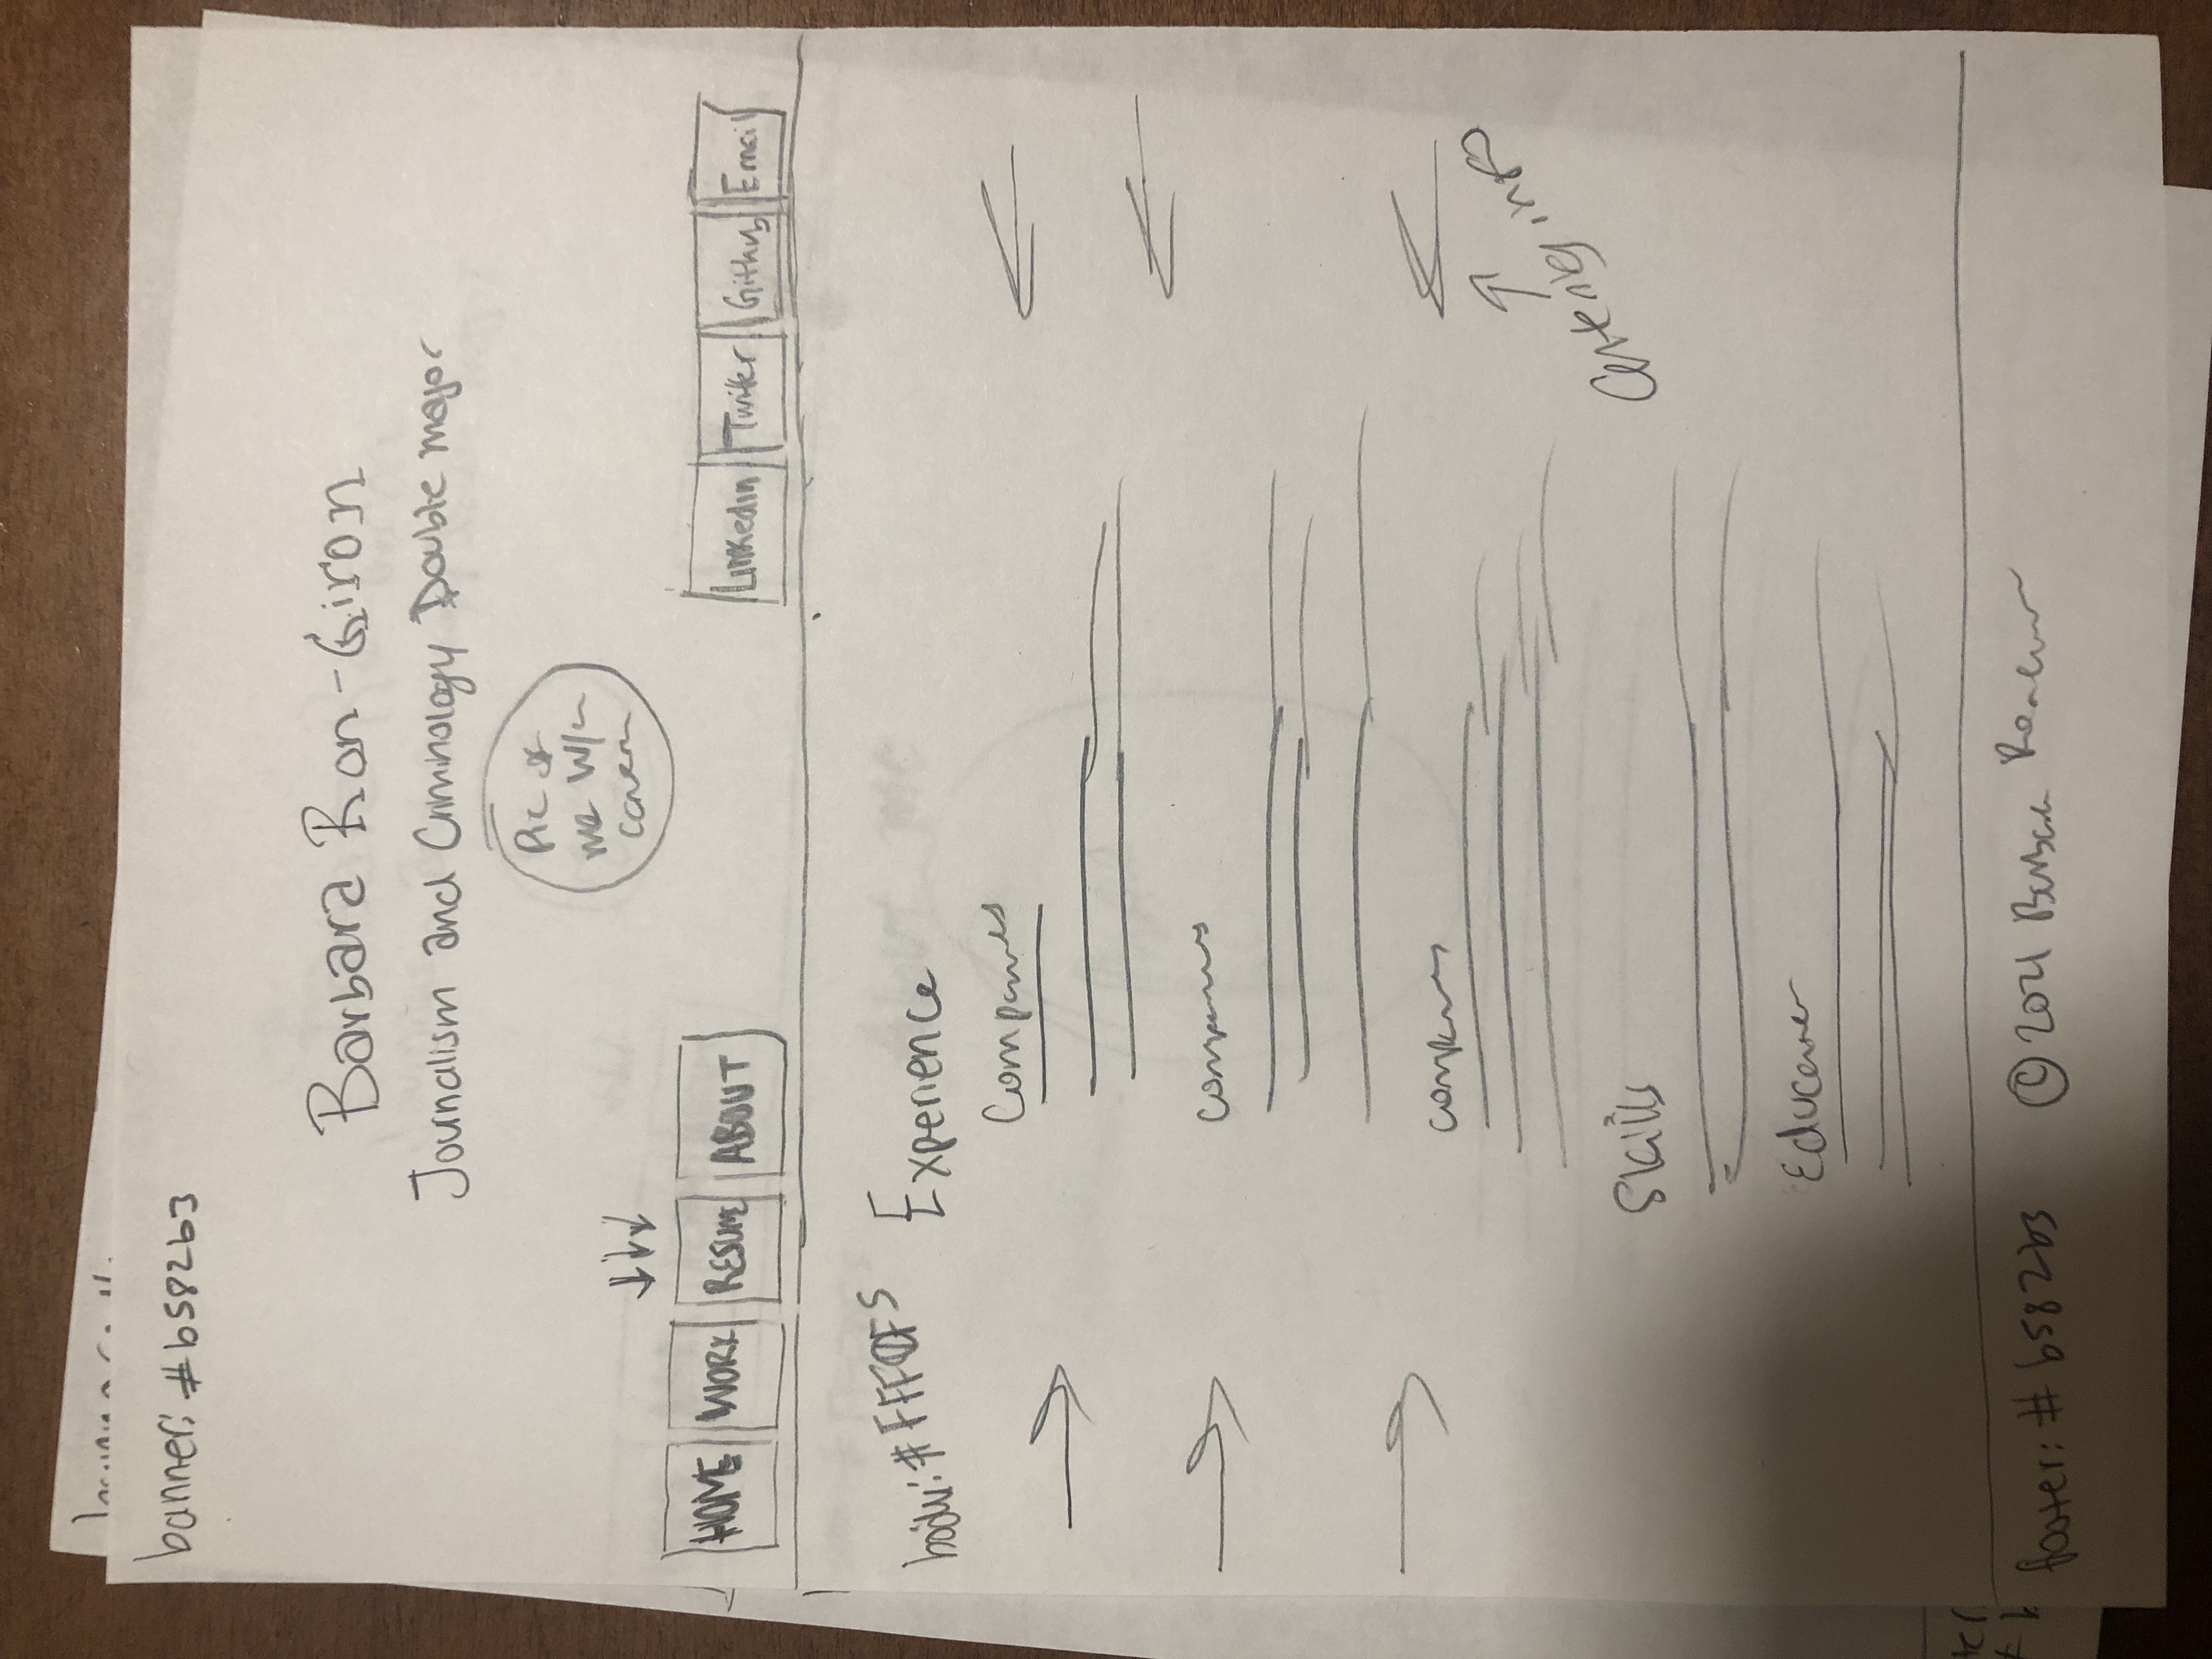 banner: #b582b3
Barbara Ron-Giron
Journalism and Criminology Double major
Pic of
me w/
HOME WORK RESUME ABOUT
Linkedin Twitter Github Email
body: #FFF0F5
Experience
Companies
Skills
centering info
footer: #b582b3 © 2021 Barbara